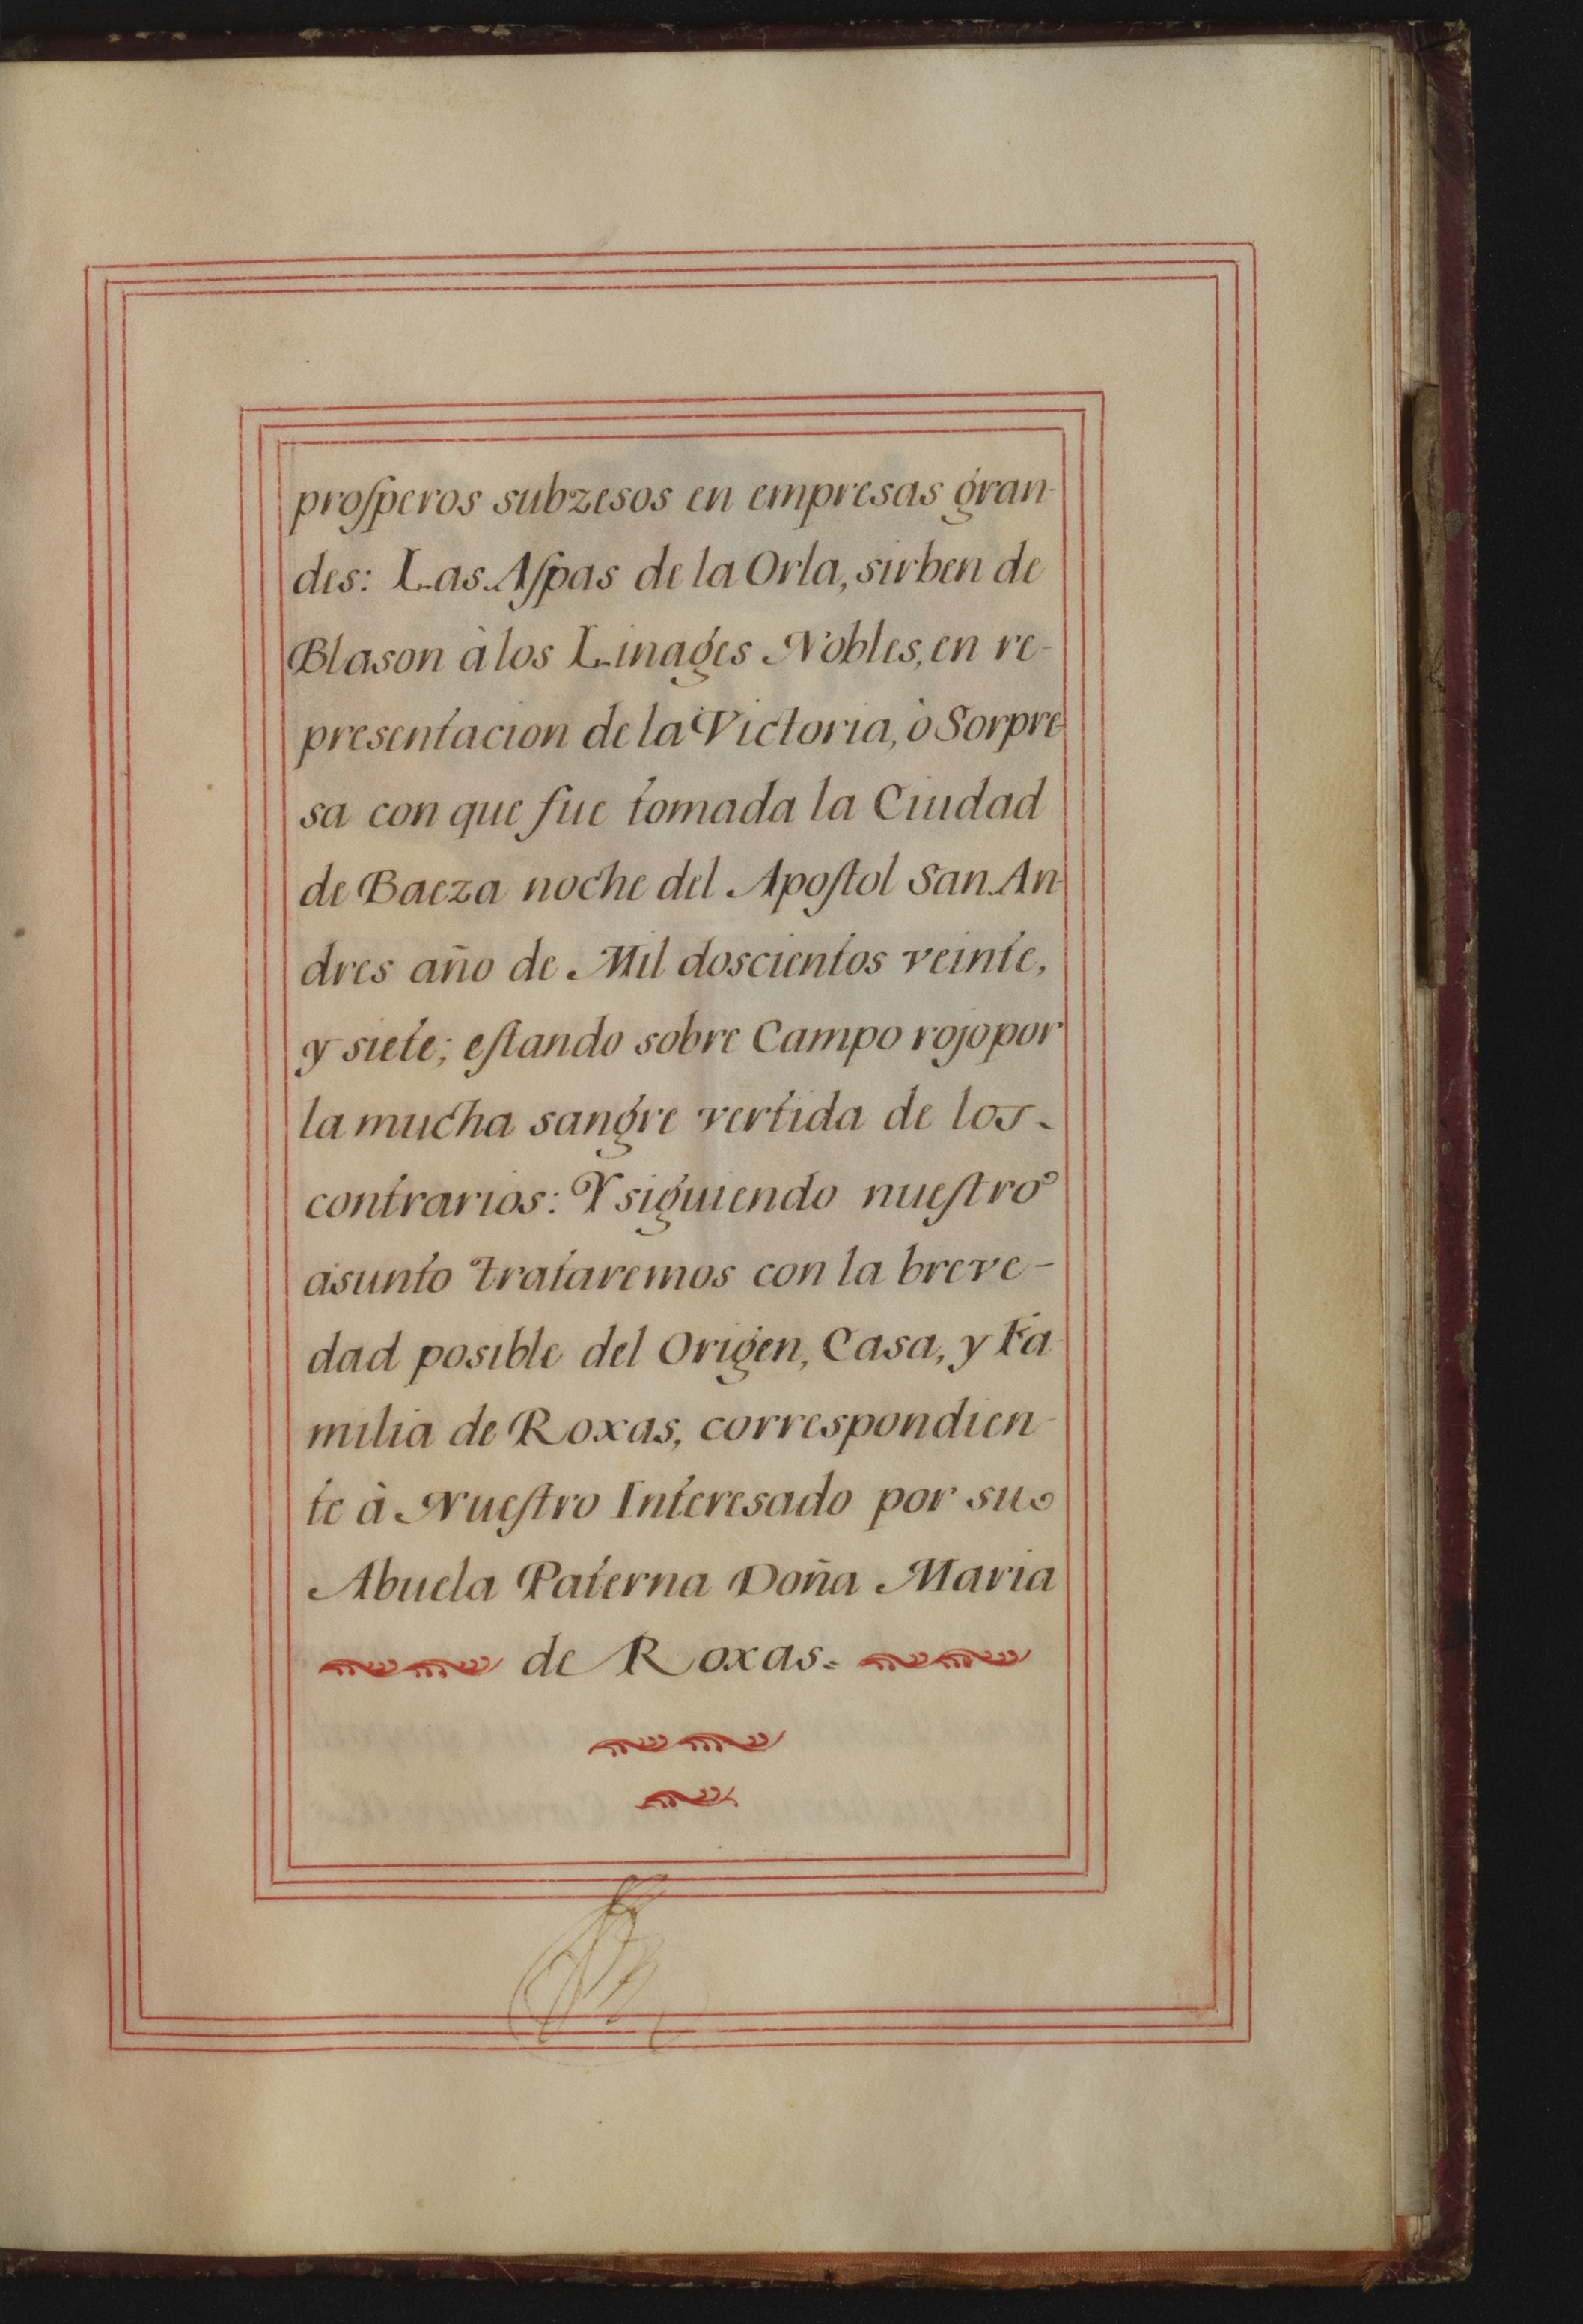 proſperos subzesos en empresas gran-
des: Las Aſpas de la Orla, sirben de
Blason à los Linages Nobles, en re-
presentacion de la Victoria, ò Sorpre
sa con que fue tomada la Ciudad
de Baeza noche del Apoſtol San An-
dres año de Mil doscientos veinte,
y siete; eſtando sobre Campo rojo por
la mucha sangre vertida de los
contrarios: Y siguiendo nueſtro
asunto trataremos con la breve-
dad posible del Origen, Casa, y Fa-
milia de Roxas, correspondien-
te à Nueſtro Interesado por su
Abuela Paterna Doña Maria
de Roxas.